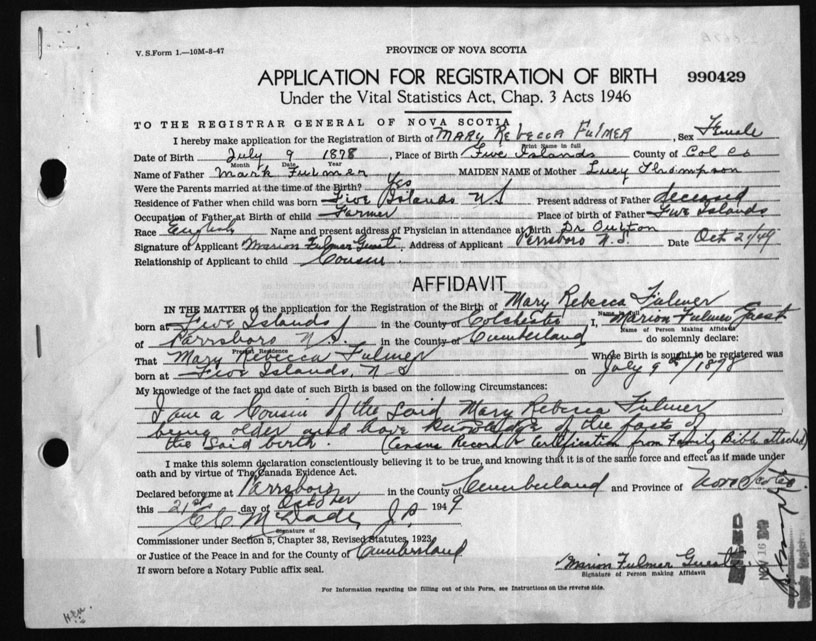 V. S. Form 1.—10M-8-47
PROVINCE OF NOVA SCOTIA
APPLICATION FOR REGISTRATION OF BIRTH 990429
Under the Vital Statistics Act, Chap. 3 Acts 1946
TO THE REGISTRAR GENERAL OF NOVA SCOTIA
I hereby make application for the Registration of Birth of MARY REBECCA FULMER, Sex Female
Print Name in full
Date of Birth July 9 1878, Place of Birth Five Islands County of Col Co
Month Date Year
Name of Father Mark Fulmer MAIDEN NAME of Mother Lucy Thompson
Were the Parents married at the time of the Birth? Yes
Residence of Father when child was born Five Islands NS Present address of Father deceased
Occupation of Father at Birth of child Farmer Place of birth of Father Five Islands
Race English Name and present address of Physician in attendance at birth Dr Oulton
Signature of Applicant Marion Fulmer Guest, Address of Applicant Parrsboro N.S. Date Oct 21/49
Relationship of Applicant to child Cousin.
AFFIDAVIT
IN THE MATTER of the application for the Registration of the Birth of Mary Rebecca Fulmer
Name in full
born at Five Islands in the County of Colchester I, Marion Fulmer Guest
Name of Person Making Affidavit
of Parrsboro N.S. in the County of Cumberland do solemnly declare:
Present Residence
That Mary Rebecca Fulmer Whose Birth is sought to be registered was
born at Five Islands, NS on July 9th/1878
My knowledge of the fact and date of such Birth is based on the following Circumstances:
I am a Cousin of the said Mary Rebecca Fulmer
being older and have knowledge of the facts of
the said birth. (Census Record & Certification from Family Bible attached)
I make this solemn declaration conscientiously believing it to be true, and knowing that it is of the same force and effect as if made under
oath and by virtue of The Canada Evidence Act.
Declared before me at Parrsboro in the County of Cumberland and Province of Nova Scotia
this 21st day of October 1949
J.P.
Signature of
Commissioner under Section 5, Chapter 38, Revised Statutes, 1923
or Justice of the Peace in and for the County of Cumberland
If sworn before a Notary Public affix seal.
Marion Fulmer Guest
Signature of Person making Affidavit
NOV 16
For Information regarding the filling out of this Form, see Instructions on the reverse side.